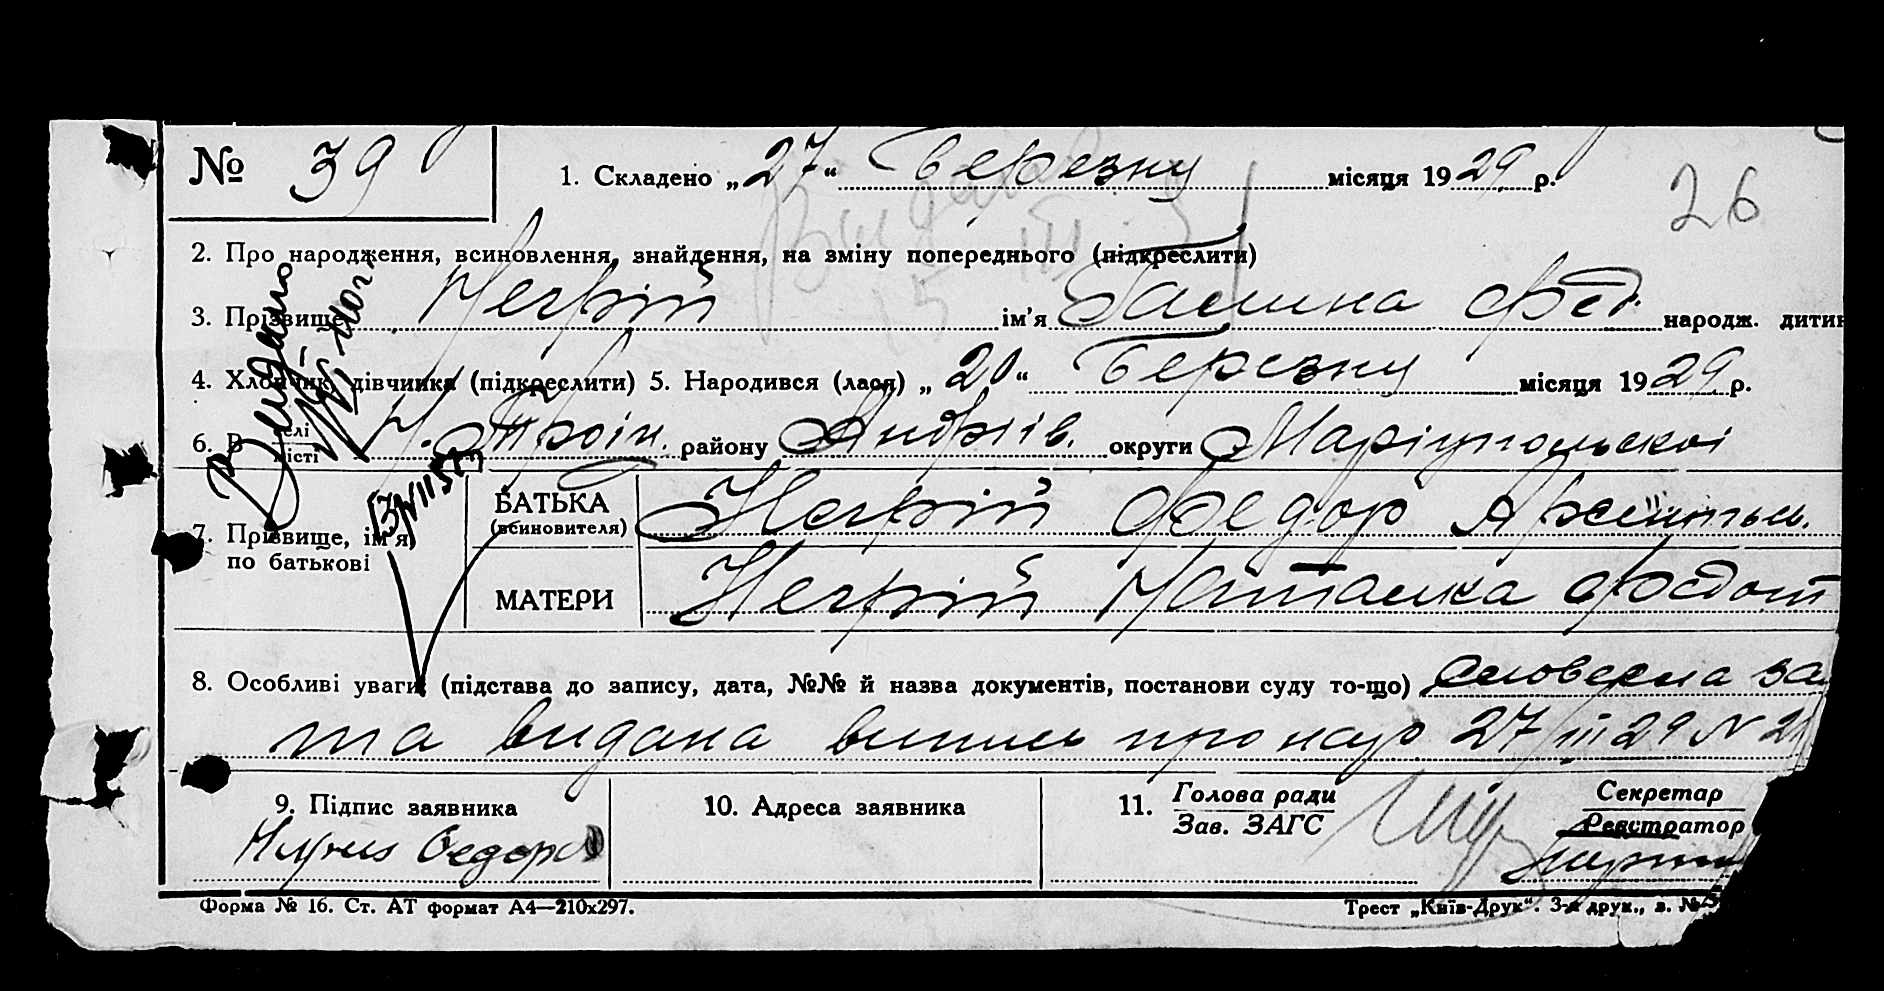 № 39
1. Складено „27“ березну місяця 1929 р.
26
2. Про народження, всиновлення, знайдення, на зміну попереднього (підкреслити)
3. Прізвище Негрій ім’я Галина Фед. народж. дитин
4. Хлопчик, дівчинка (підкреслити) 5. Народився (лася) „20“ березну місяця 1929 р.
6. В селі місті Н. Троїн. району Андріїв. округи Маріупольскоі
7. Прізвище, ім’я, по батькові
БАТЬКА (всиновителя) Негрій Федор
МАТЕРИ Негрій Наталка Федот
8. Особливі уваги (підстава до запису, дата, №№ й назва документів, постанови суду то-що) Словесна за
та видана випись про нар 27/III 29 N 2
9. Підпис заявника
10. Адреса заявника
11. Голова ради Зав. ЗАГС
Секретар Реєстратор
Федор
Форма № 16. Ст. АТ формат А4—210х297.
Трест „Київ-Друк“. 3-я друк., в. №